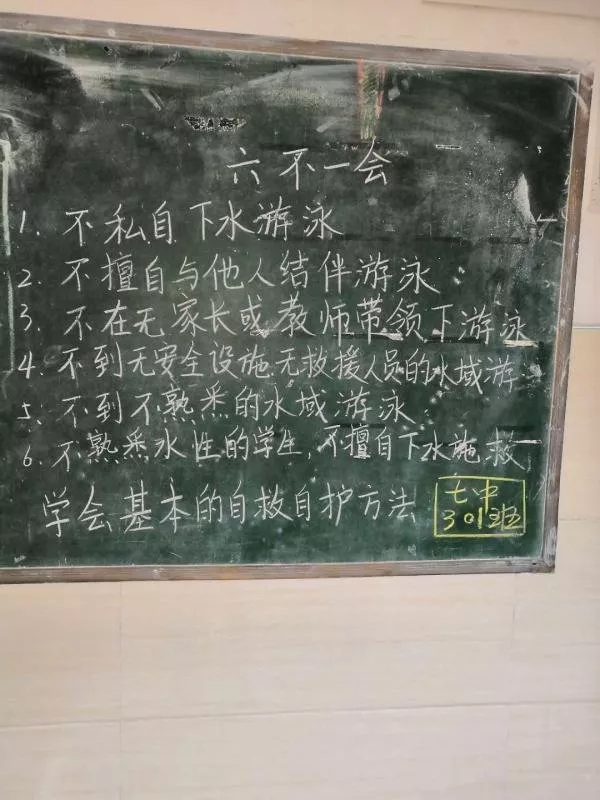 六不一会
1. 不私自下水游泳
2. 不擅自与他人结伴游泳
3. 不在无家长或教师带领下游泳
4. 不到无安全设施、无救援人员的水域游
5、不到不熟悉的水域游泳
6. 不熟悉水性的学生,不擅自下水施救
学会基本的自救自护方法
七中
301班